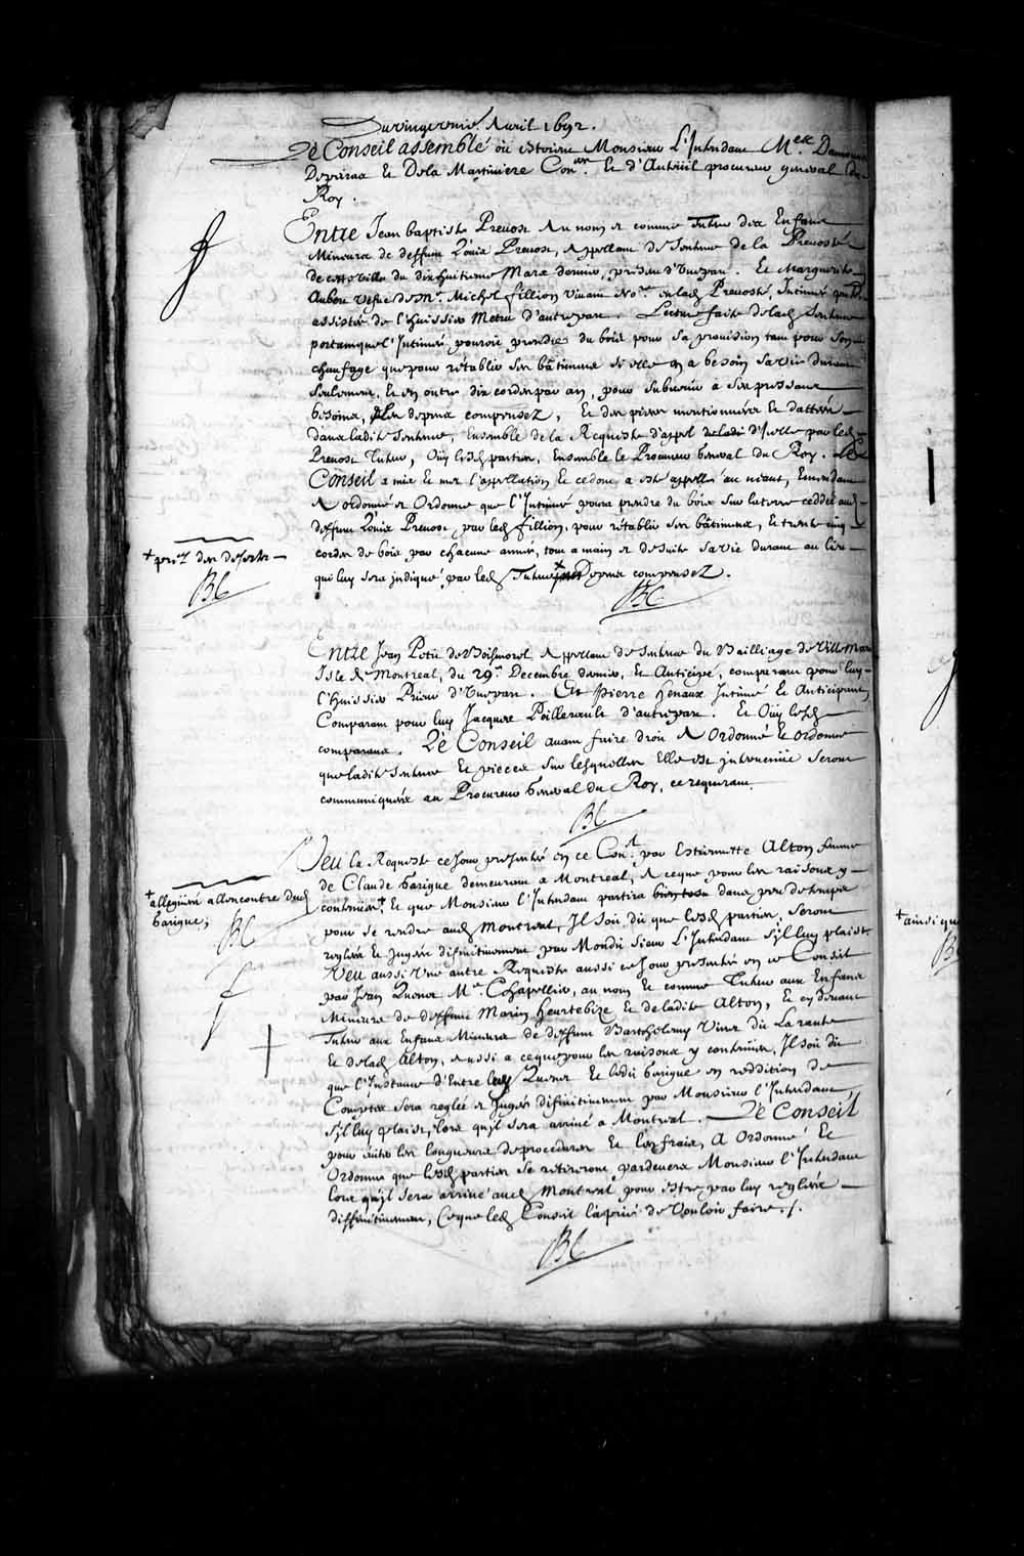 Du vingt unie. Avril 1692.
Le Conseil assemblé où estoient Monsieur L'Intendant Mes.re
Depeiras Et Dela Martiniere Con.ers Et d'Auteüil procureur general du
Roy.
Entre Jean baptiste Prevost Au nom et comme Tuteur des Enfans
Mineurs de deffunt Loüis Prevost, Appellant de Sentence de la Prevosté
de cette ville du dixhuitieme Mars dernier, present d'Une part. Et Marguerite
Aubert vefve de M.e Michel fillion vivant No.re en lad. Prevosté, Intimée
assistée de l'huissier Metru d'autre part. Lecture faite de lad. Sentence
portant que l'Intimée pourroit prendre du bois pour sa provision tant pour son
chaufage que pour rétablir ses bâtimens si elle en a besoin sa vie durant
seulement, Et en outre dix cordes par an, pour subvenir à ses pressans
besoins, depens compensez, Et des pieces mentionnées Et dattées
dans ladite Sentence, Ensemble de la Requeste d'appel d'Icelle par led.
Prevost Tuteur, Oüy lesd. parties, Ensemble le Procureur General du Roy. Le
Conseil a mis Et met l'appellation Et ce dont a esté appellé au neant, Emendant
A ordonné et Ordonne que l'Intimée poura prendre du bois sur la terre ceddée aud.
deffunt Loüis Prevost, par led. fillion, pour rétablir ses bâtimens, Et trente cinq
cordes de bois par chacune année, tout à main et de suite sa vie durant au lieu
qui luy sera indiqué par led. Tuteur + Depens compensez.
BC
+ prez des deserts
BC
Entre Jean Petit de Boismorel Appellant de Sentence du Bailliage de Ville Marie
Isle de Montreal, du 29.e Decembre dernier, Et Anticipé, comparant pour luy
l'huissier Prieur d'Une part. Et Pierre henaux Intimé Et Anticipant,
Comparant pour luy Jacques Poillerault d'autre part. Et Oüy lesd.
comparans. Le Conseil avant faire droit A Ordonné Et ordonne
que ladite Sentence Et pieces sur lesquelles Elle est intervenüe seront
communiquées au Procureur General du Roy, ce requerant.
BC
Veu la Requeste ce jour presentée en ce Con.l par Estiennette Alton femme
de Claude Garigue demeurant a Montreal, A ce que pour les raisons y
contenües + Et que Monsieur l'Intendant partira bientost dans peu de temps
pour se rendre aud. Montreal, Il soit dit que lesd. parties, seront
reglées Et jugées difinitivement par Mondit sieur L'Intendant s'il luy plaist.
+ alleguées allencontre dud.
Garigue;
BC
Veu aussi Une autre Requeste aussi ce jour presentée en ce Conseil
par Jean Quenet M.e Chapellier, au nom Et comme Tuteur aux Enfans
Mineurs de deffunt Marin heurtebize Et de ladite Alton, Et cy devant
Tuteur aux Enfans Mineurs de deffunt Barthelemy Vinet dit La rente
Et de lad. Alton, aussi a ce que pour les raisons y contenües, Il soit dit
que l'Instance d'Entre led. Quenet Et ledit Garigue en reddition de
Comptes sera reglée et jugée difinitivement par Monsieur l'Intendant,
s'il luy plaist, lors qu'il sera arrivé à Montreal. Le Conseil
pour eviter les longueurs de procedures Et les frais, A Ordonné Et
Ordonne que lesd. parties se retireront pardevers Monsieur l'Intendant
lors qu'il sera arrivé aud. Montreal pour estre par luy reglées
diffinitivement, Ce que led. Conseil l'a prié de Vouloir faire./.
BC
+ ainsi que
B